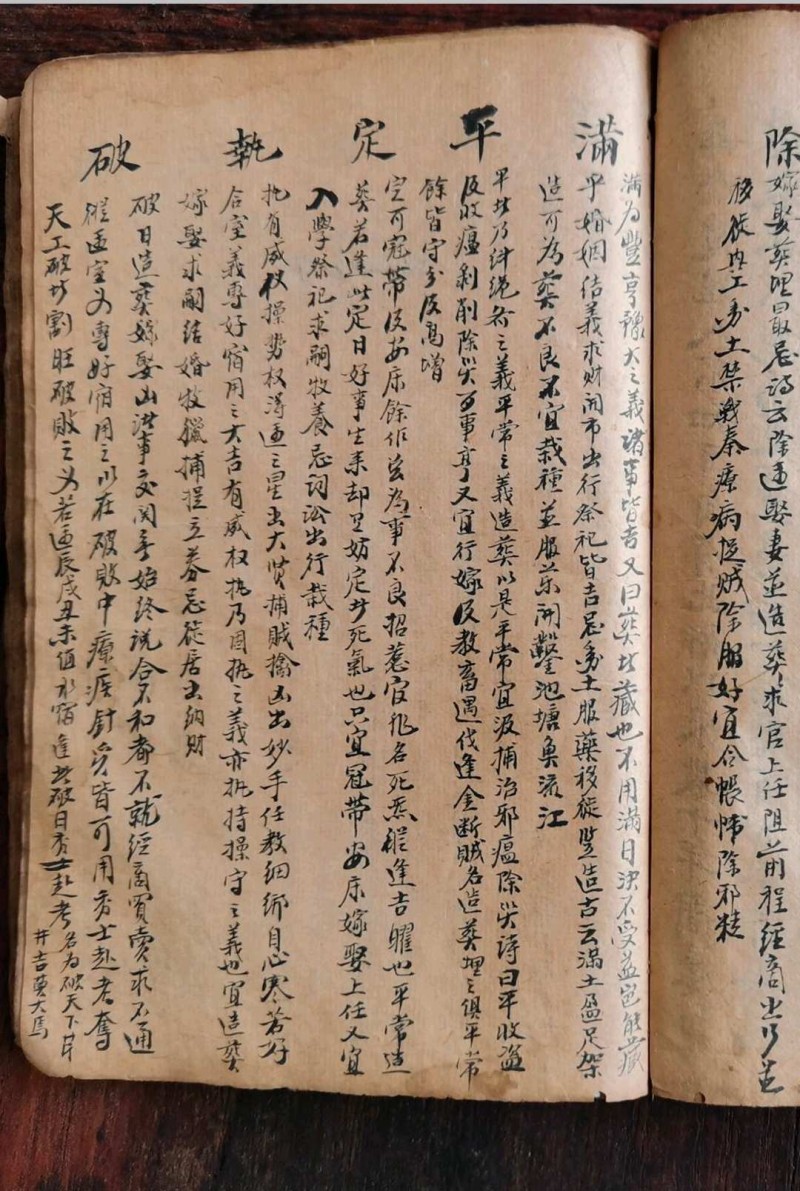 除
嫁娶葬埋最忌詩云除逢娶妻並造葬求官上任阻前程經商出行並
移徙内工動土禁戰秦療病捉賊除服好宜合帳怖除邪
滿
滿為豐亨豫大之義諸事皆吉又曰葬者藏也不用滿日決不受益豈能藏
乎婚姻結義求财開市出行祭祀皆吉忌動土服藥移徙豎造古云滿土盈足架
造可為葬不良不宜栽種並服藥開鑿池塘魚流江
平
平者乃絆繩吞之義平常之義造葬以是平常宜汲捕治邪瘟除災詩曰平收盜
及收瘟剥削除災百事亨又宜行嫁及教畜遇伐逢金断賊名造葬埋之俱平常
餘皆守分及高增
定
定可冠帶及安床餘作並為事不良招惹官非名死炁縱逢吉曜也平常造
葬若逢此定日好事生来却里妨定者死氣也只宜冠帶安床嫁娶上任又宜
入學祭祀求嗣牧養忌詞訟出行栽種
執
执有威权操势权淂逢之星出大贤捕賊擒凶出妙手任教细绑自心寒若好
合室義專好宿用之大吉有威权执乃固执之義亦执持操守之義也宜造葬
嫁娶求嗣结婚牧獵捕捉立券忌徙居出纳财
破
破日造葬嫁娶凶洪事交関無始终说合不和都不就经商買賣求不通
縱逢室义專好宿用之以在破敗中療疾針灸皆可用秀士赴考奪
天工破者割旺破敗之义若逢辰戌丑未值水宿逢此破日秀士赴考名为破天下
井吉